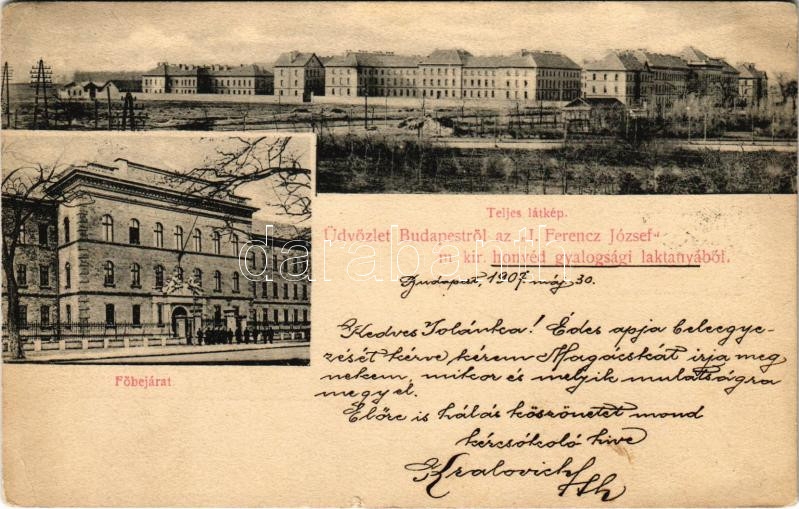 Teljes látkép.
Üdvözlet Budapestről az I. Ferencz József-
m. kir. honvéd gyalogsági laktanyából.
Budapest, 1907. máj 30.
Főbejárat
Kedves Jolánka! Édes apja beleegye-
zését kérve kérem Magácskát irja meg
nekem, mikor és melyik mulatságra
megyel.
Előre is hálás köszönetet mond
kézcsókoló hive
Kralovich
darabanth.com